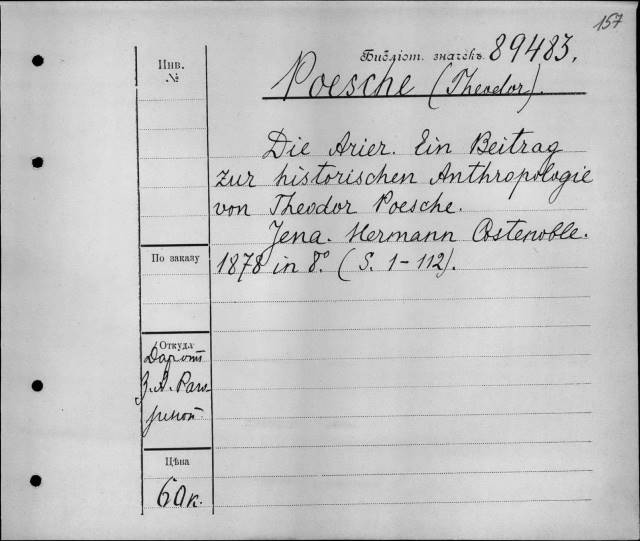 157
Библіот. значекъ 89483.
Инв.
№
Poesche (Theodor).
Die Arier. Ein Beitrag
zur historischen Anthropologie
von Theodor Poesche.
Jena. Hermann Costenoble.
По заказу
1878 in 8º. (S. 1-112).
Откуда
Даръ отъ
З. А.
Цѣна
60 к.